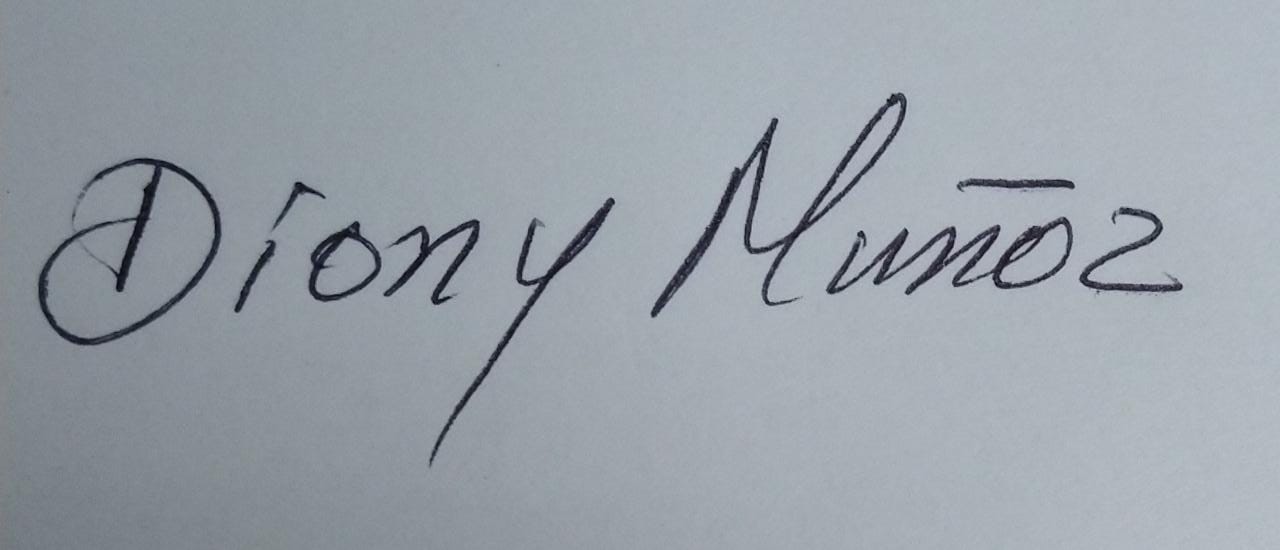 Diony Muñoz